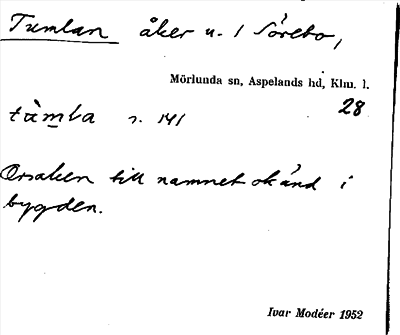 Tumlan åker n. 1 Sörebo,
Mörlunda sn, Aspelands hd, Klm. l.
28
tùmla s. 141
Orsaken till namnet okänd i
bygden.
Ivar Modéer 1952